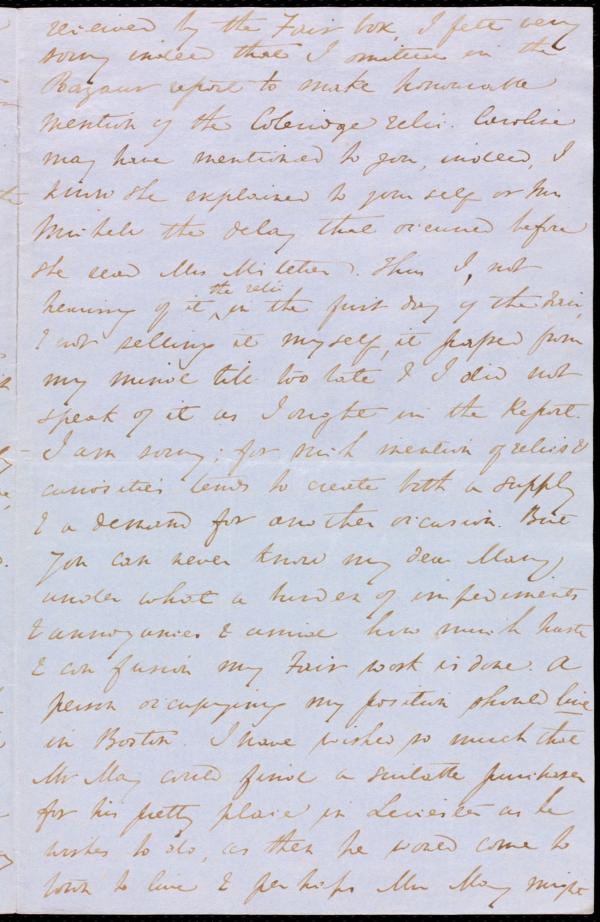 received by the Fair box, I felt very
sorry indeed that I omitted in the
Bazaar report to make honourable
mention of the Coleridge relic. Caroline
may have mentioned to you, indeed, I
know she explained to yourself or Mr
Michell the delay that occurred before
she read Mrs Mitchell. Thus I, not
hearing of it the relic in the first day of the Fair,
& not selling it myself, it passed from
my mind till too late & I did not
speak of it as I ought in the Report.
I am sorry; for such mention of relics &
curiosities tends to create both a supply
& a demand for another occasion. But
you can never know my dear Mary
under what a burden of impediments
& annoyances & amid how much haste
& confusion my Fair work is done. A
person occupying my position should live
in Boston. I have wished so much that
Mr May could find a suitable purchaser
for his pretty place in Leicester as he
wishes to do, as then he would come to
town to live & perhaps Mrs May might